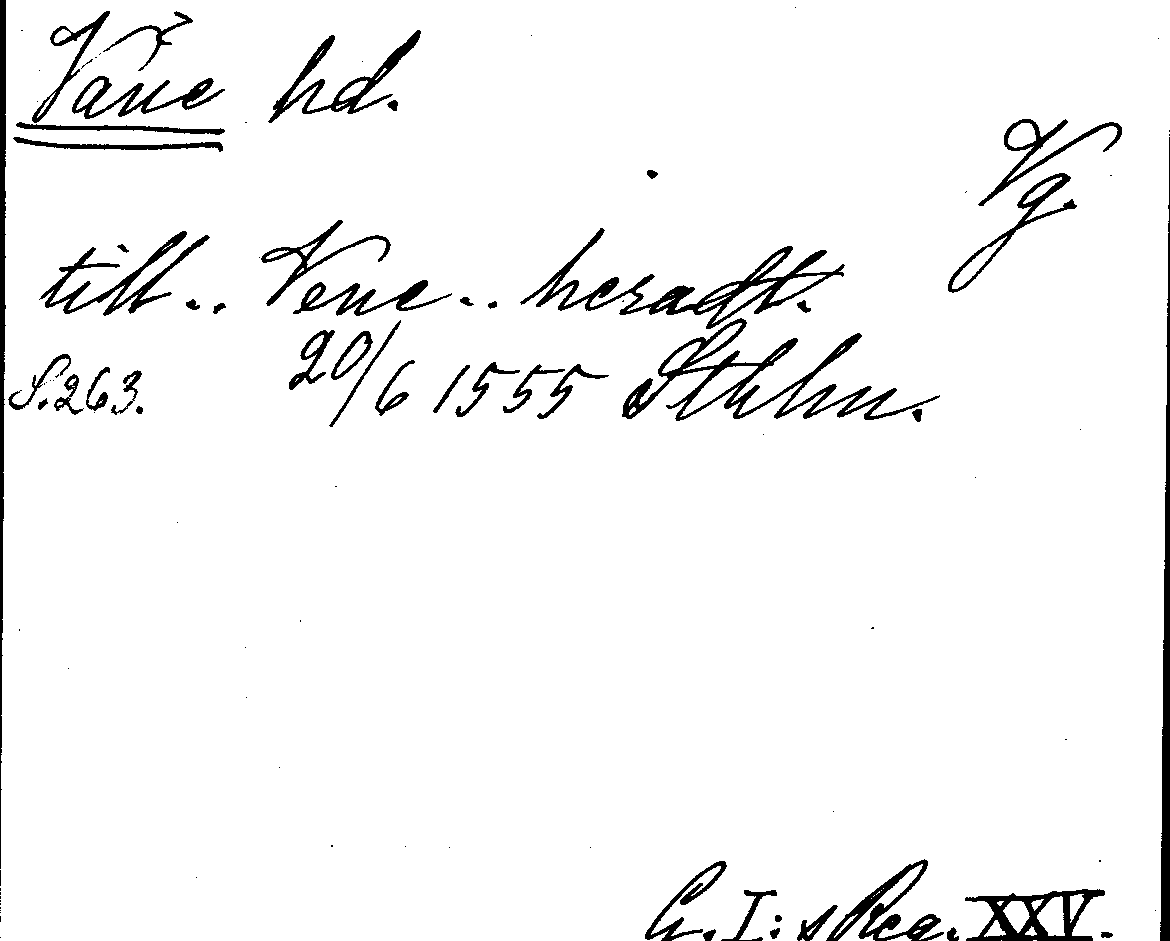 Väne hd.
Vg.
till.. Vene.. heradt.
S. 263. 20/6 1555 Sthlm.
G. I:s Reg. XXV.